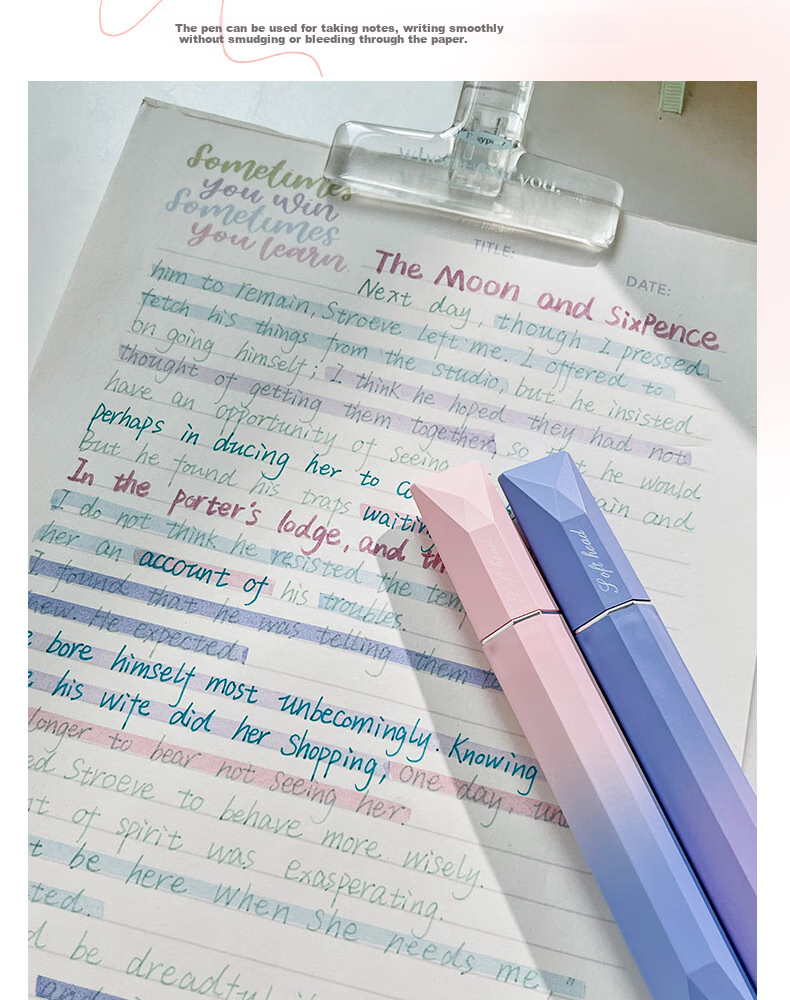 The pen can be used for taking notes, writing smoothly
without smudging or bleeding through the paper.
Sometimes
you win
Sometimes
you learn.
you.
TITLE:
DATE:
The Moon and SixPence
Next day, though I pressed
him to remain, Stroeve left me. I offered to
fetch his things from the studio, but he insisted
on going himself; I think he hoped they had not
thought of getting them together, so that he would
have an opportunity of seeing ain and
perhaps in ducing her to co
But he found his traps waitin
In the porter's lodge, and th
I do not think he resisted the temp
her an account of his troubles
I found that he was telling them
new. He expected.
e bore himself most unbecomingly. Knowing
e his wife did her shopping, One day, un
longer to bear not seeing her.
ed Stroeve to behave more wisely.
nt of spirit was exasperating.
t be here when she needs me,"
ted.
d be dreadful
and
Soft head
Soft head